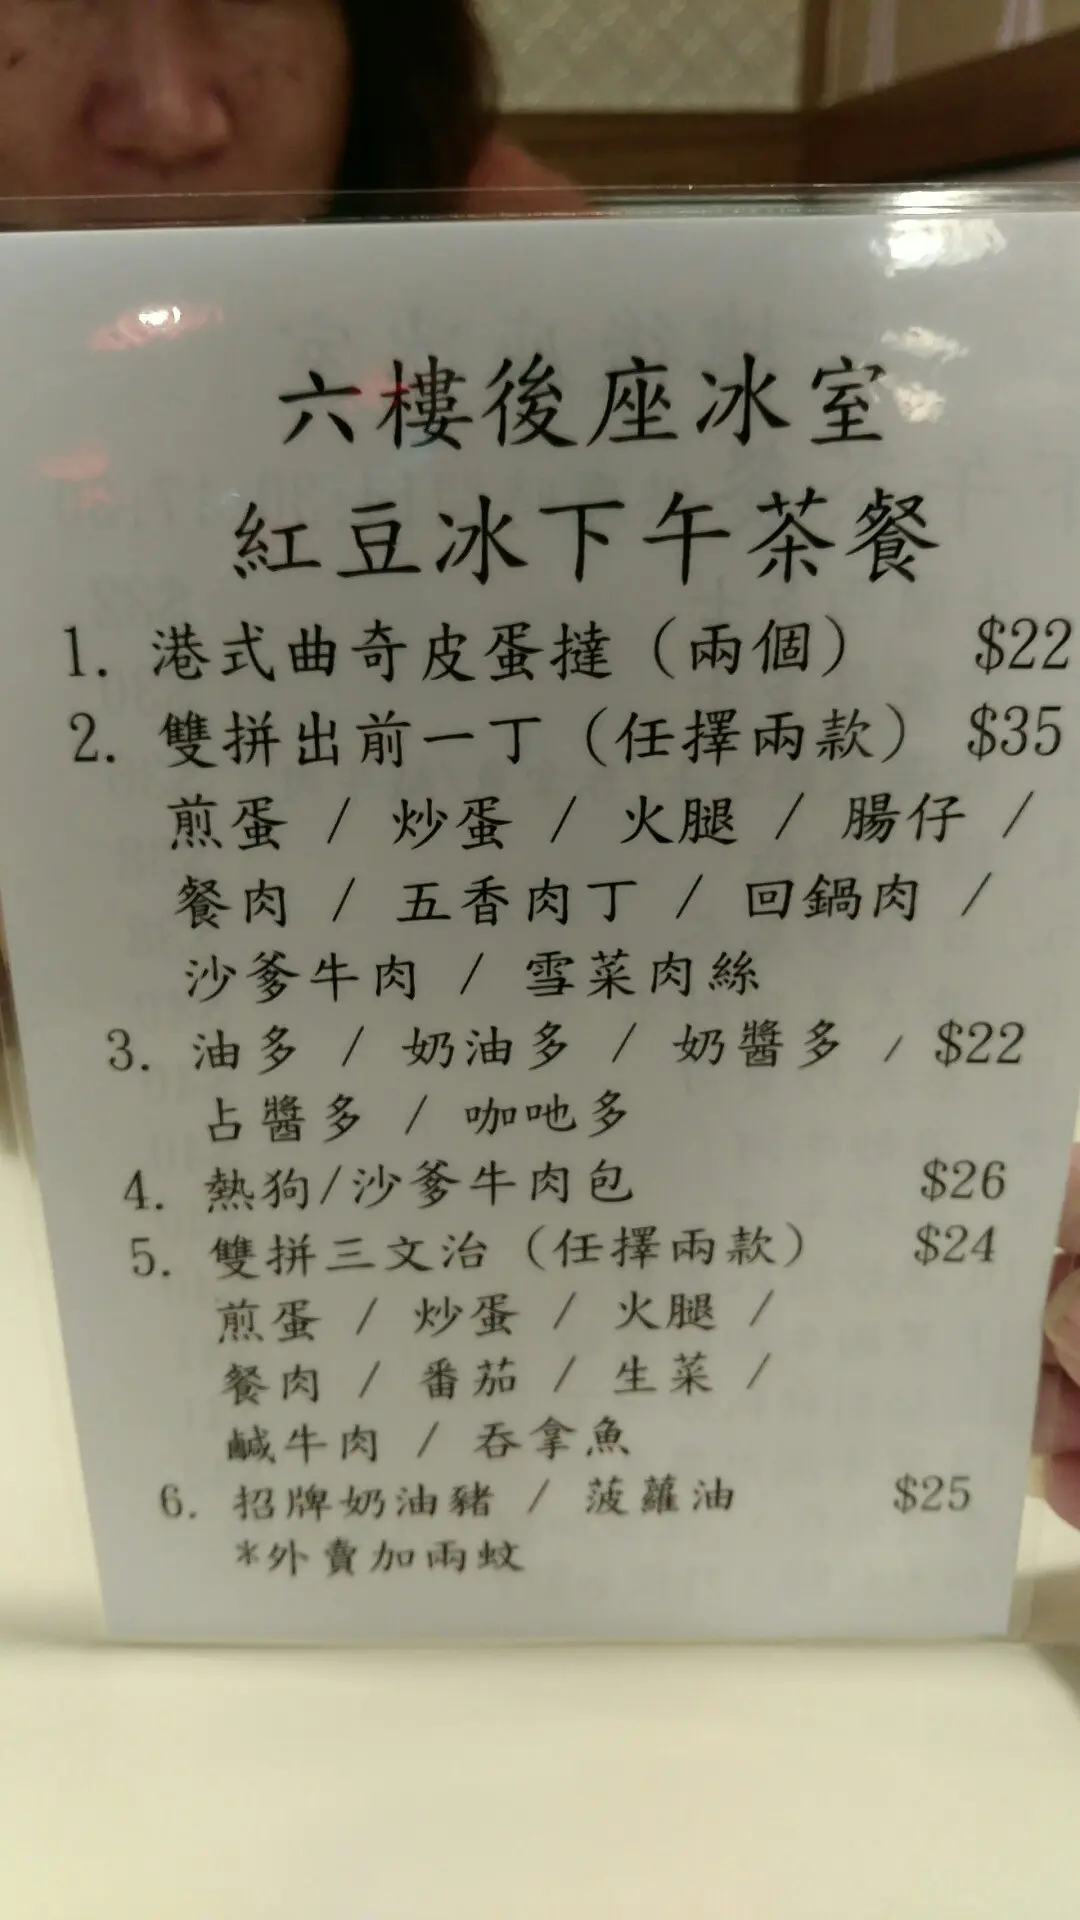 六樓後座冰室
紅豆冰下午茶餐
1. 港式曲奇皮蛋撻（兩個） $22
2. 雙拼出前一丁（任擇兩款） $35
煎蛋 / 炒蛋 / 火腿 / 腸仔 /
餐肉 / 五香肉丁 / 回鍋肉 /
沙爹牛肉 / 雪菜肉絲
3. 油多 / 奶油多 / 奶醬多 / $22
占醬多 / 咖吔多
4. 熱狗/沙爹牛肉包 $26
5. 雙拼三文治（任擇兩款） $24
煎蛋 / 炒蛋 / 火腿 /
餐肉 / 番茄 / 生菜 /
鹹牛肉 / 吞拿魚
6. 招牌奶油豬 / 菠蘿油 $25
*外賣加兩蚊